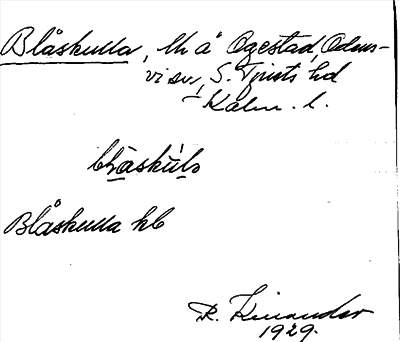 Blåskulla, lh å Ogestad, Odens-
vi sn, S. Tjusts hd
Kalm. l.
Blåskulla hb
R. Kinander
1929.